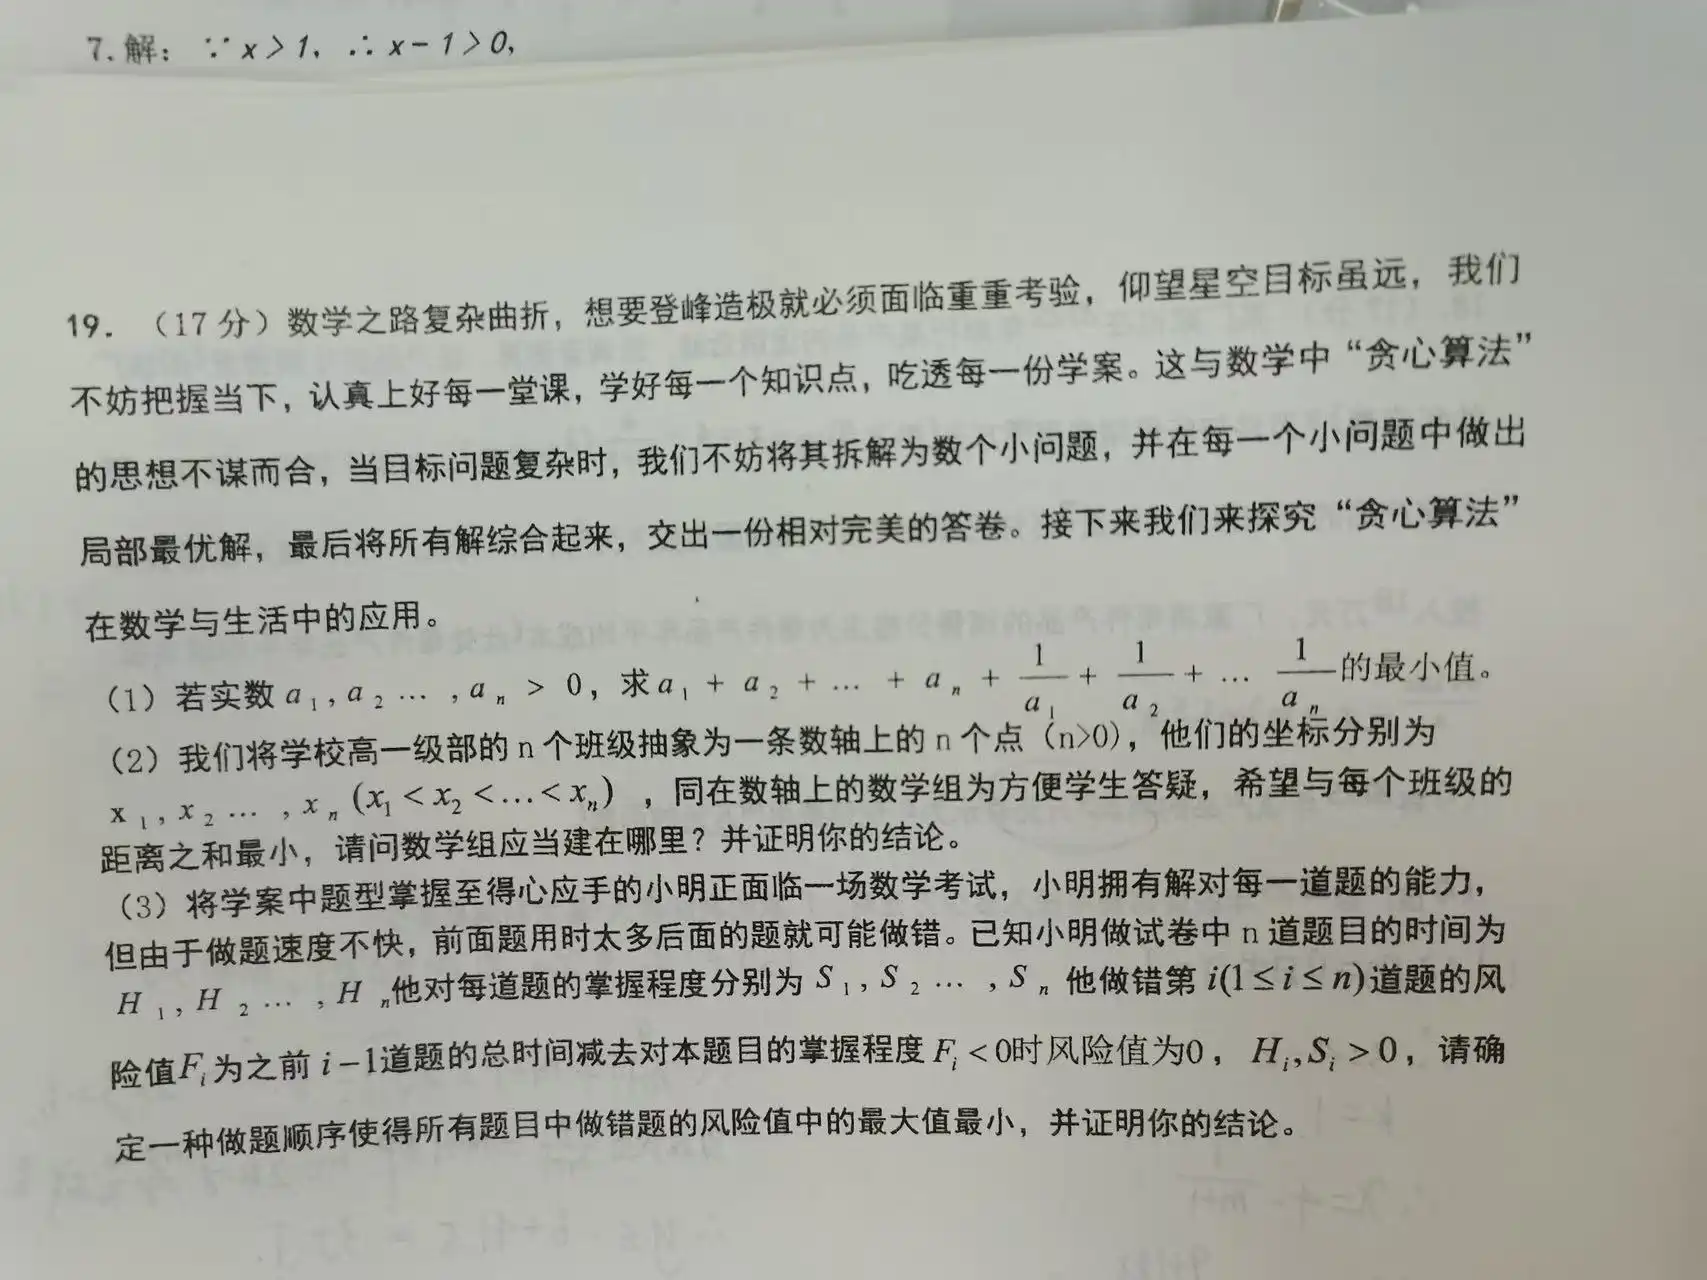 7.解：∵x＞1，∴x－1＞0，
19.（17分）数学之路复杂曲折，想要登峰造极就必须面临重重考验，仰望星空目标虽远，我们
不妨把握当下，认真上好每一堂课，学好每一个知识点，吃透每一份学案。这与数学中“贪心算法”
的思想不谋而合，当目标问题复杂时，我们不妨将其拆解为数个小问题，并在每一个小问题中做出
局部最优解，最后将所有解综合起来，交出一份相对完美的答卷。接下来我们来探究“贪心算法”
在数学与生活中的应用。
（1）若实数a₁,a₂…,aₙ > 0，求a₁+a₂+…+aₙ+1/a₁+1/a₂+…1/aₙ的最小值。
（2）我们将学校高一级部的n个班级抽象为一条数轴上的n个点（n>0），他们的坐标分别为
x₁,x₂…,xₙ(x₁<x₂<…<xₙ)，同在数轴上的数学组为方便学生答疑，希望与每个班级的
距离之和最小，请问数学组应当建在哪里？并证明你的结论。
（3）将学案中题型掌握至得心应手的小明正面临一场数学考试，小明拥有解对每一道题的能力，
但由于做题速度不快，前面题用时太多后面的题就可能做错。已知小明做试卷中n道题目的时间为
H₁,H₂…,Hₙ他对每道题的掌握程度分别为S₁,S₂…,Sₙ他做错第i(1≤i≤n)道题的风
险值Fᵢ为之前i-1道题的总时间减去对本题目的掌握程度Fᵢ<0时风险值为0，Hᵢ,Sᵢ>0，请确
定一种做题顺序使得所有题目中做错题的风险值中的最大值最小，并证明你的结论。